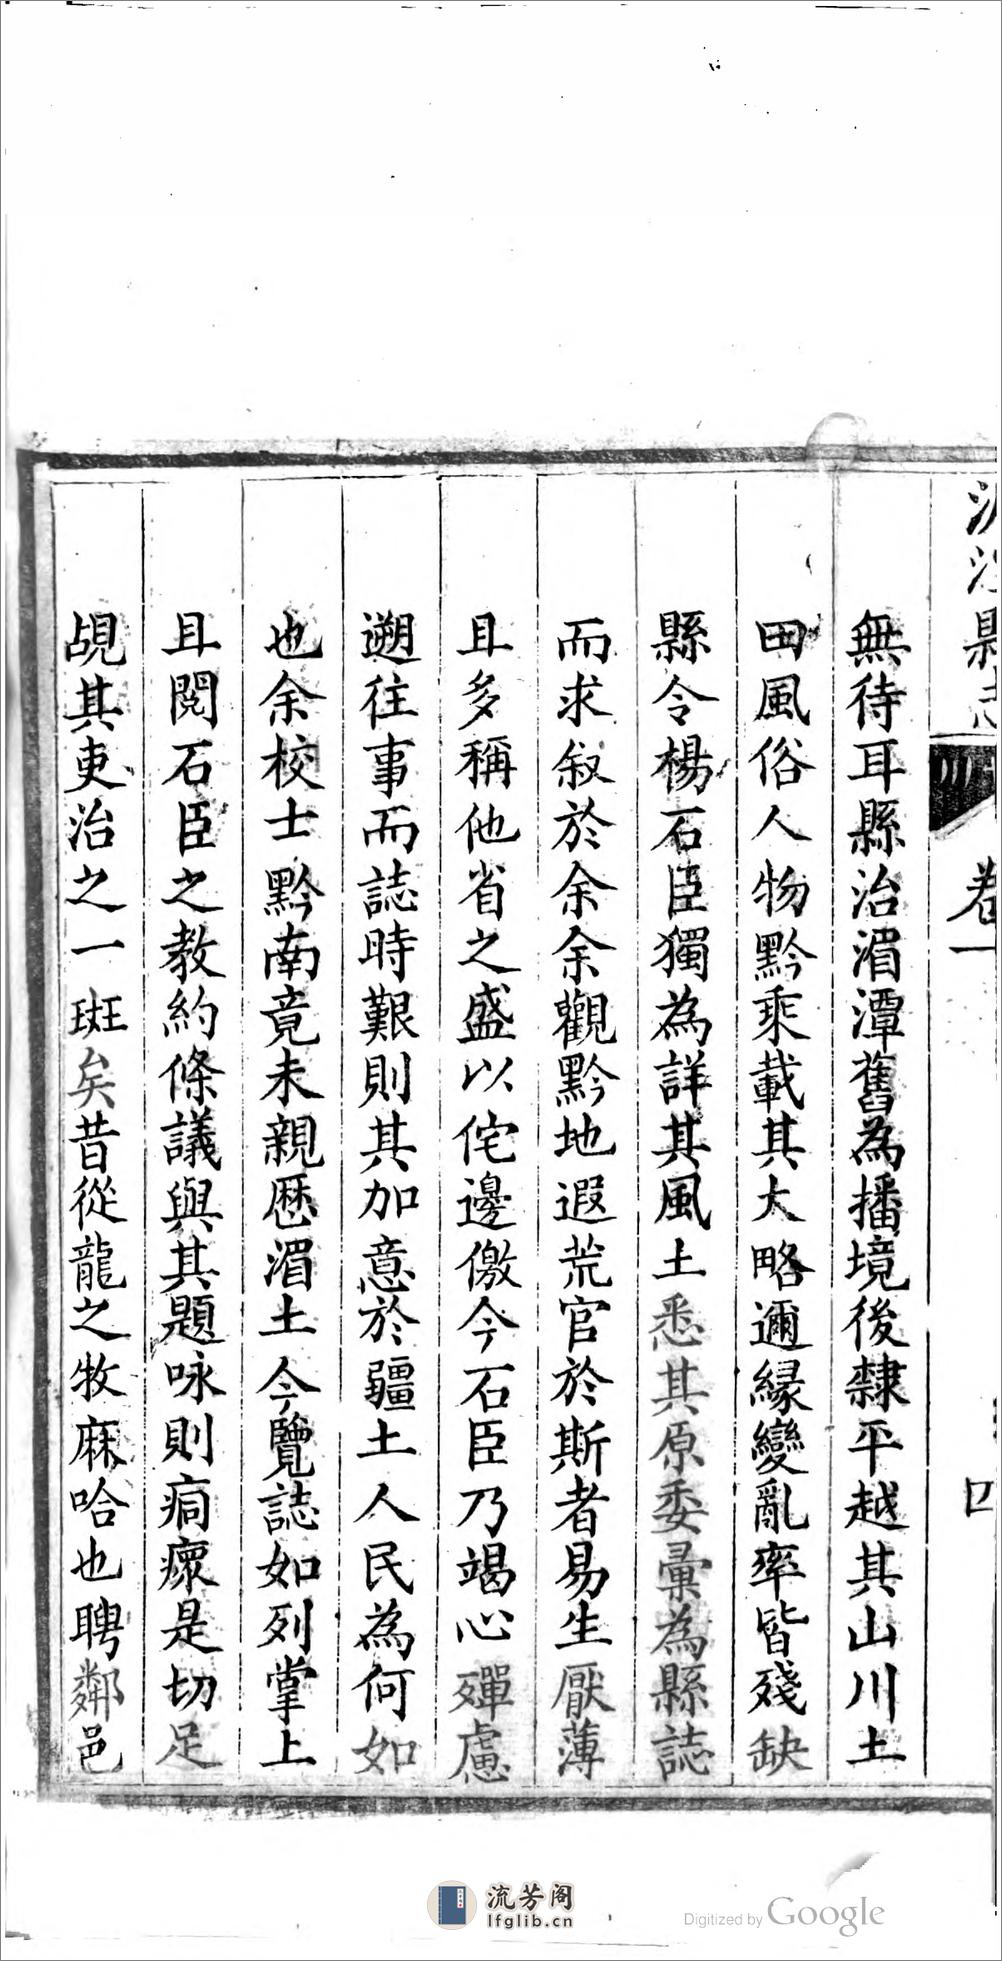 縣志
卷一
四
無待耳縣治湄潭舊為播境後隸平越其山川土
田風俗人物黔乘載其大略邇緣變亂率皆殘缺
縣令楊石臣獨為詳其風土悉其原委彙為縣誌
而求敘於余余觀黔地遐荒官於斯者易生厭薄
且多稱他省之盛以侘邊儌今石臣乃竭心殫慮
遡往事而誌時艱則其加意於疆土人民為何如
也余校士黔南竟未親歷湄土今覽誌如列掌上
且閱石臣之教約條議與其題咏則痌瘝是切足
覘其吏治之一斑矣昔從龍之牧麻哈也聘鄰邑
流芳阁
lfglib.cn
Digitized by Google